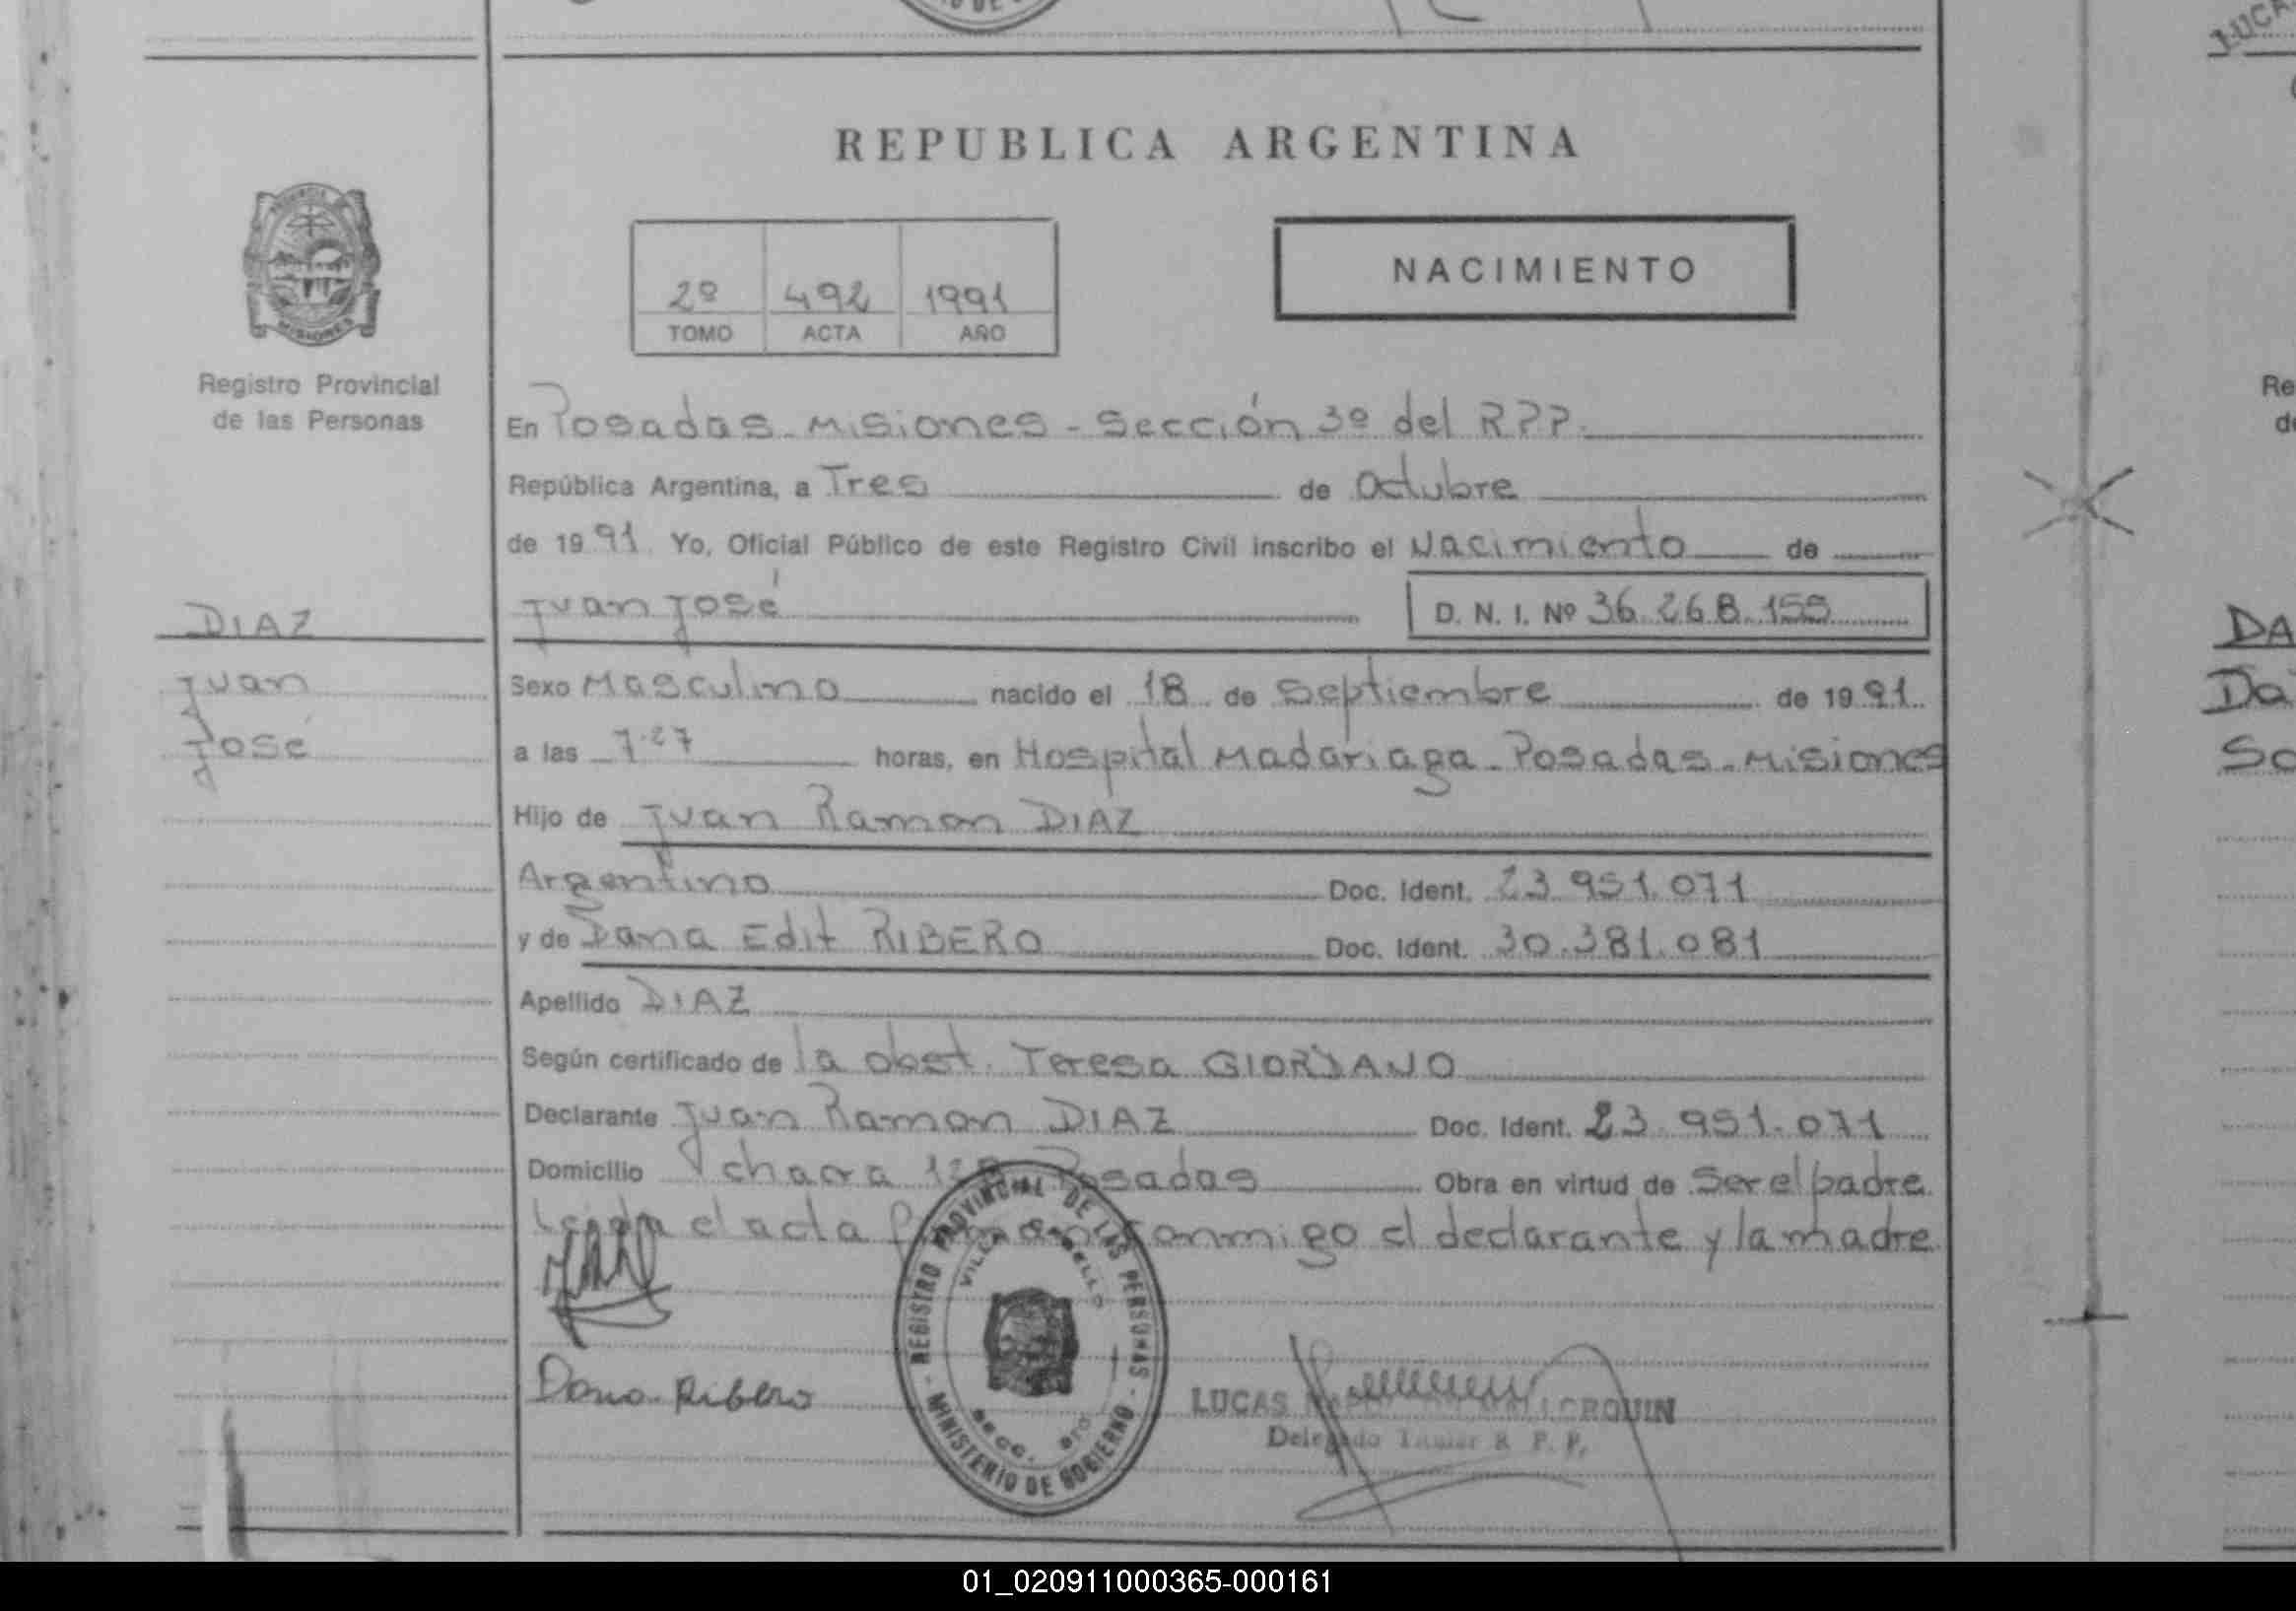 REPUBLICA ARGENTINA
MISIONES
Registro Provincial
de las Personas
2º 492 1991
TOMO ACTA AÑO
NACIMIENTO
En Posadas - Misiones - Sección 3º del R.P.P.
República Argentina, a Tres de Octubre
de 1991 Yo, Oficial Público de este Registro Civil inscribo el Nacimiento de
Juan José D. N. I. Nº 36.268.159
DIAZ
Juan
José
Sexo Masculino nacido el 18 de Septiembre de 1991
a las 7.27 horas, en Hospital Madariaga - Posadas - Misiones
Hijo de Juan Ramon DIAZ
Argentino Doc. Ident. 23.951.071
y de Dana Edit RIBERO Doc. Ident. 30.381.081
Apellido DIAZ
Según certificado de la obst. Teresa GIORDANO
Declarante Juan Ramon DIAZ Doc. Ident. 23.951.071
Domicilio chacra Posadas Obra en virtud de Ser el padre
Leida el acta conmigo el declarante y la madre
REGISTRO PROVINCIAL DE LAS PERSONAS
MINISTERIO DE GOBIERNO
Dana Ribero
LUCAS
Delegado Titular R. P. P.
Re
de
DA
Da
So
01_020911000365-000161